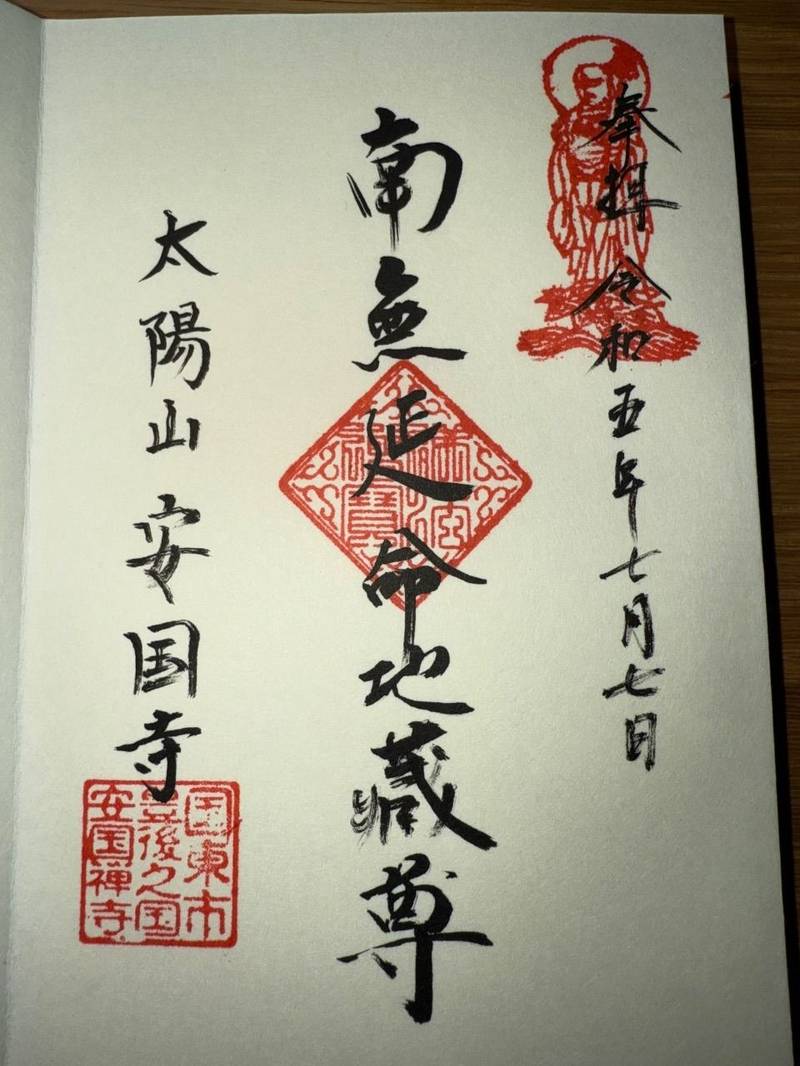 奉拝 令和五年七月七日
南無延命地蔵尊
太陽山安国寺
国東市
豊後之国
安国禅寺